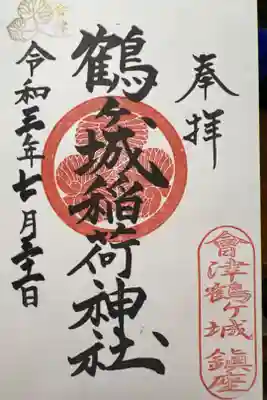 奉拝
鶴ヶ城稲荷神社
令和三年七月三十一日
會津鶴ヶ城 鎮座